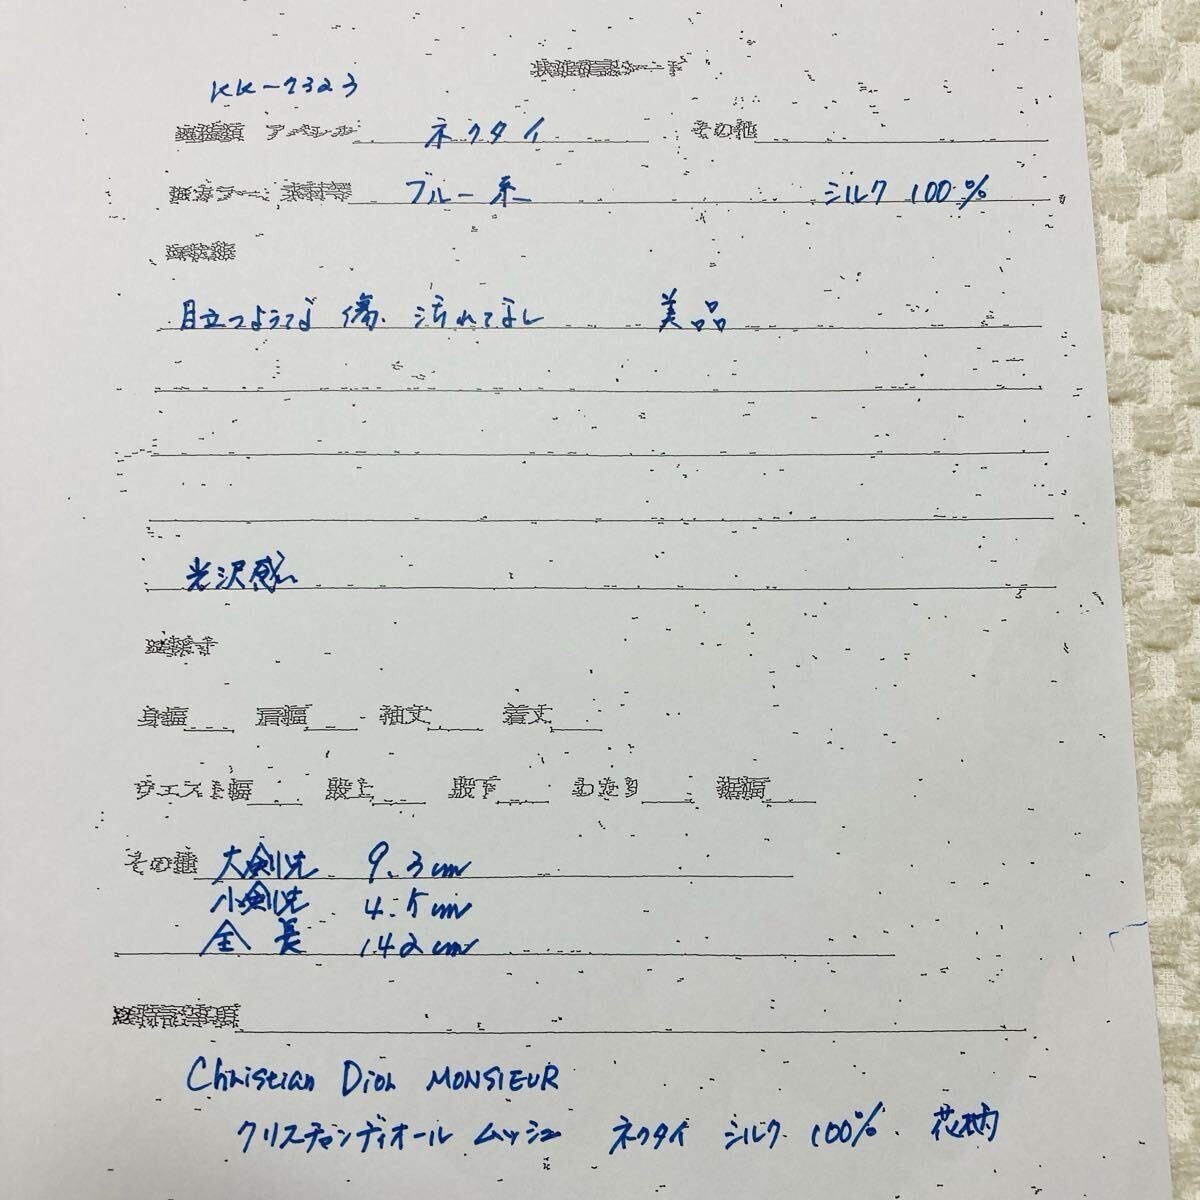 KK-7323
アパレル ネクタイ その他
カラー 素材等 ブルー系 シルク 100%
目立つような 傷、汚れてなし 美品
光沢感
身幅 肩幅 袖丈 着丈
ウエスト幅 股上 股下 わたり 裾幅
その他 大剣先 9.3cm
小剣先 4.5cm
全長 142cm
特記事項
Christian Dior MONSIEUR
クリスチャンディオール ムッシュ ネクタイ シルク 100% 花柄